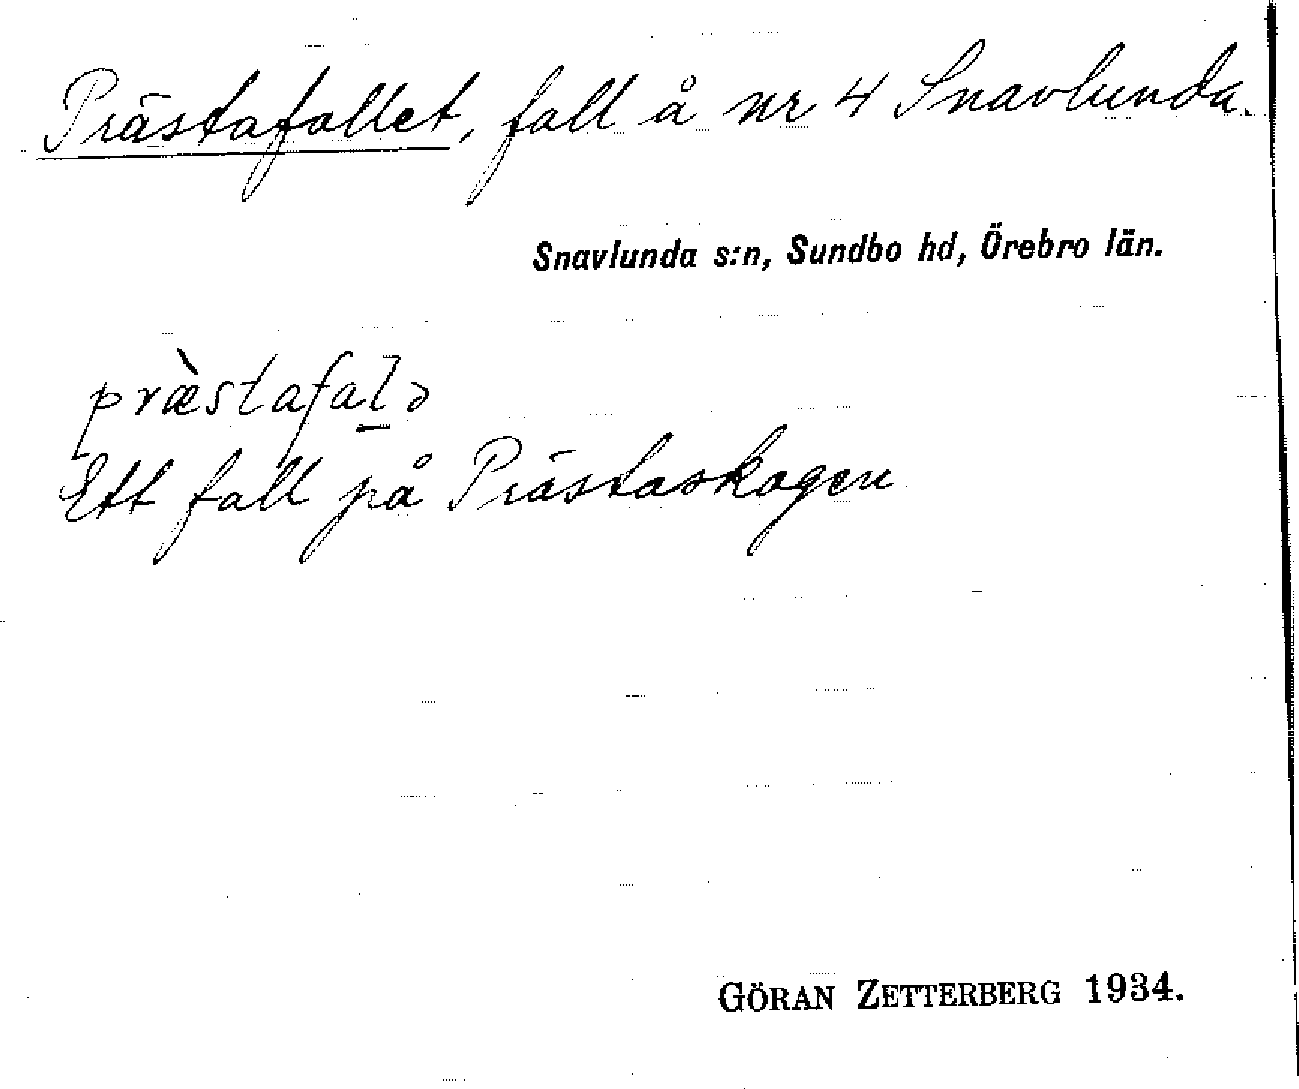 Prästafallet, fall å nr 4 Snavlunda.
Snavlunda s:n, Sundbo hd, Örebro län.
præ̀stafal̲ə
Ett fall på Prästaskogen
GÖRAN ZETTERBERG 1934.